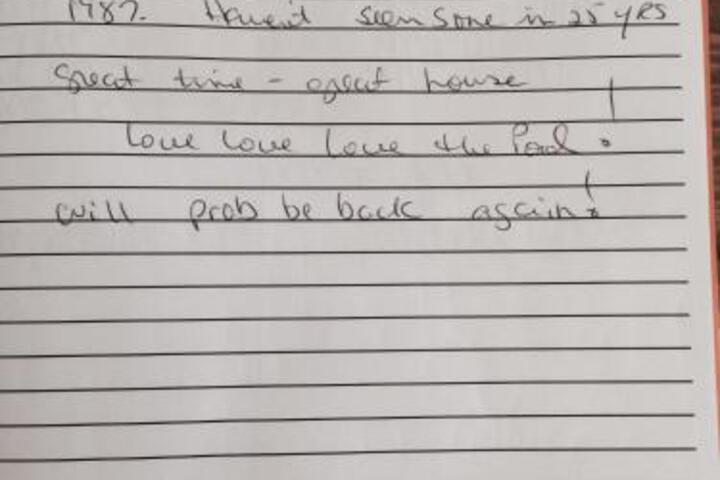 1987. Haven't seen some in 25 yrs
Great time - great house
Love Love Love the Pool!
will prob be back again!